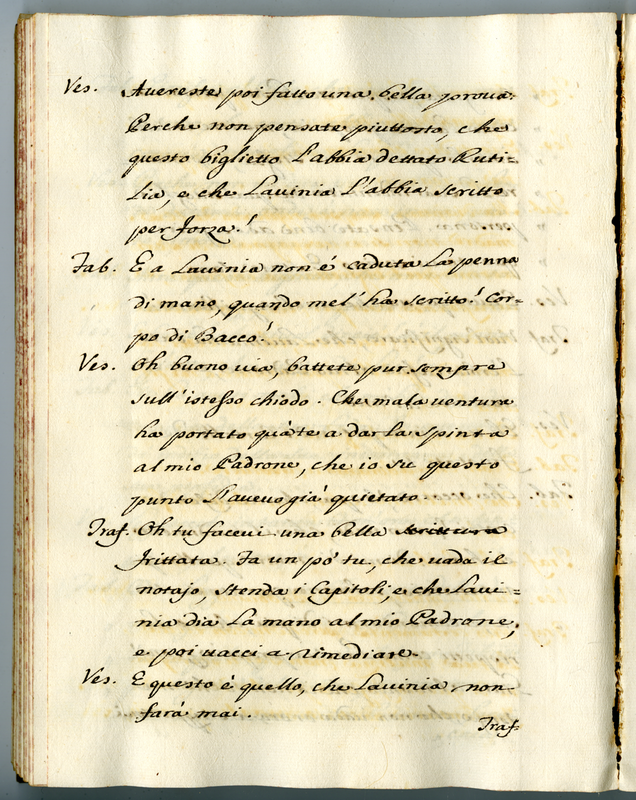 Ves. Avereste poi fatto una bella prova.
Perche non pensate piuttosto, che
questo biglietto l'abbia dettato Ruti=
lia, e che Lavinia l'abbia scritto
per forza!
Fab. E a Lavinia non é caduta la penna
di mano, quando mel' ha scritto! Cor=
po di Bacco!
Ves. Oh buono via, battete pur sempre
sull' istesso chiodo. Che mala ventura
ha portato quà te a dar la spinta
al mio Padrone, che io su questo
punto l'avevo già quietato.
Traf. Oh tu facevi una bella scrittura
frittata. Fa un pó tu, che vada il
notajo, stenda i Capitoli, e che Lavi=
nia dia la mano al mio Padrone,
e poi vacci a rimediare.
Ves. E questo è quello, che Lavinia non
farà mai.
Traf.